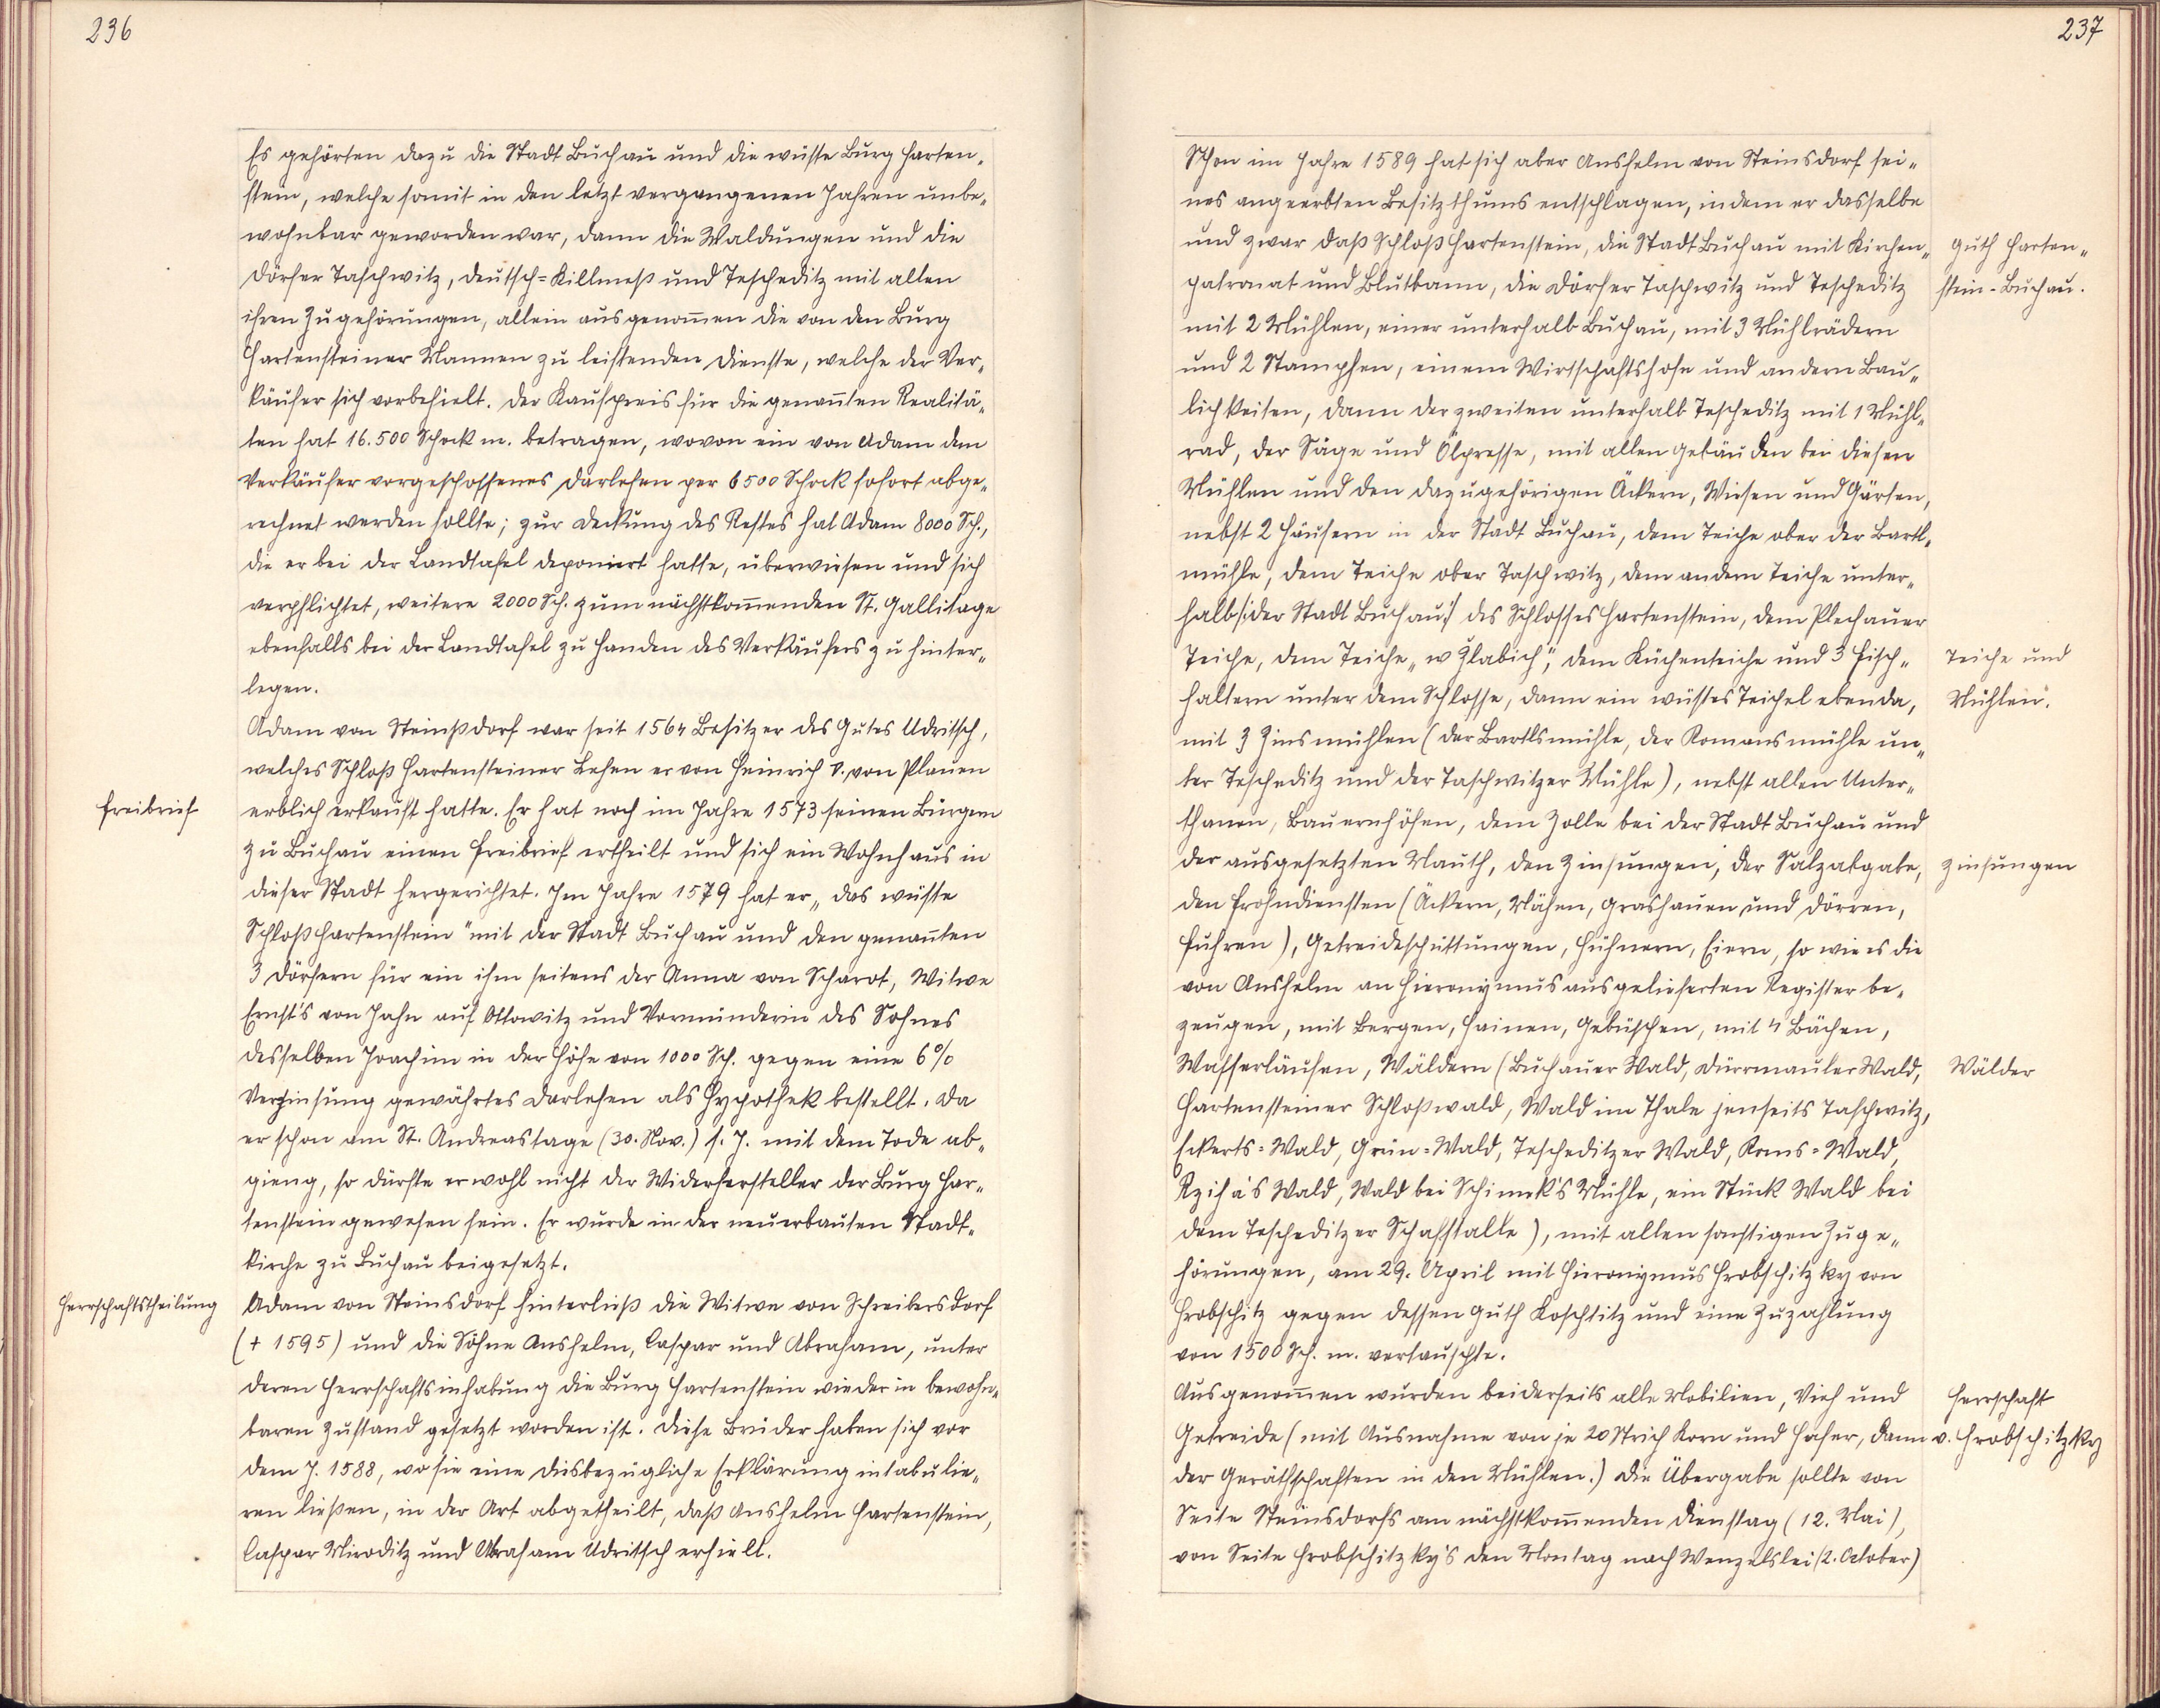 236
Es gehörten dazu die Stadt Buchau und die wüste Burg Harten-
stein, welche somit in den letzt vergangenen Jahren unbe-
wohnbar geworden war, dann die Waldungen und die
Dörfer Taschwitz, Deutsch-Killmeß und Tescheditz mit allen
ihren Zugehörungen, allein ausgenom̄en die von den Burg
Hartensteiner Mannen zu leistenden Dienste, welche der Ver-
käufer sich vorbehielt. Der Kaufpreis für die genan̄ten Realitä-
ten hat 16.500 Schock m. betragen, wovon ein von Adam dem
Verkäufer vorgeschossenes Darlehen per 6500 Schock sofort abge-
rechnet werden sollte; zur Deckung des Restes hat Adam 8000 Sch.,
die er bei der Landtafel deponiert hatte, überwiesen und sich
verpflichtet, weitere 2000 Sch. zum nächstkom̄enden St. Gallitage
ebenfalls bei der Landtafel zu Handen des Verkäufers zu hinter-
legen.
Adam von Steinßdorf war seit 1564 Besitzer des Gutes Udritsch,
welches Schloß Hartensteiner Lehen er von Heinrich V. von Plauen
Freibrief
erblich erkauft hatte. Er hat noch im Jahre 1573 seinen Bürgern
zu Buchau einen Freibrief ertheilt und sich ein Wohnhaus in
dieser Stadt hergerichtet. Im Jahre 1579 hat er „das wüste
Schloß Hartenstein" mit der Stadt Buchau und den genan̄ten
3 Dörfern für ein ihm seitens der Anna von Scharot, Witwe
Ernst's von Jahn auf Ottowitz und Vormünderin des Sohnes
desselben Joachim in der Höhe von 1000 Sch. gegen eine 6%
Verzinsung gewährtes Darlehen als Hypothek bestellt. Da
er schon am St. Andreastage (30. Nov.) s. J. mit dem Tode ab-
gieng, so dürfte er wohl nicht der Widerhersteller der Burg Har-
tenstein gewesen sein. Er wurde in der neuerbauten Stadt-
kirche zu Buchau beigesetzt.
Herrschaftstheilung
Adam von Steinsdorf hinterließ die Witwe von Schreibersdorf
(+ 1595) und die Söhne Anshelm, Caspar und Abraham, unter
deren Herrschaftsinhabung die Burg Hartenstein wieder in bewohn-
baren Zustand gesetzt worden ist. Diese Brüder haben sich vor
dem J. 1588, wo sie eine diesbezügliche Erklärung intabulie-
ren ließen, in der Art abgetheilt, daß Anshelm Hartenstein,
Caspar Miroditz und Abraham Udritsch erhielt.
237
Schon im Jahre 1589 hat sich aber Anshelm von Steinsdorf sei-
nes angeerbten Besitzthums entschlagen, indem er dasselbe
und zwar daß Schloß Hartenstein, die Stadt Buchau mit Kirchen-
Guth Harten-
patronat und Blutbann, die Dörfer Taschwitz und Tescheditz
stein-Buchau.
mit 2 Mühlen, einer unterhalb Buchau, mit 3 Mühlrädern
und 2 Stampfen, einem Wirtschaftshofe und andern Bau-
lichkeiten, dann der zweiten unterhalb Tescheditz mit 1 Mühl-
rad, der Säge und Ölpresse, mit allen Gebäuden bei diesen
Mühlen und den dazugehörigen Äckern, Wiesen und Gärten,
nebst 2 Häusern in der Stadt Buchau, dem Teiche ober der Bartl-
mühle, dem Teiche ober Taschwitz, dem andern Teiche unter-
halb /:der Stadt Buchau:/ des Schlosses Hartenstein, dem Plechauer
Teiche, dem Teiche „w Žlabich", dem Küchenteiche und 3 Fisch-
Teiche und
haltern unter dem Schlosse, dann ein wüstes Teichel ebenda,
Mühlen.
mit 3 Zinsmühlen (der Bartlsmühle, der Romansmühle un-
ter Tescheditz und der Taschwitzer Mühle), nebst allen Unter-
thanen, Bauernhöfen, dem Zolle bei der Stadt Buchau und
der ausgesetzten Mauth, den Zinsungen, der Salzabgabe,
Zinsungen
den Frohndiensten (Äckern, Mähen, Grashauen und Dörren,
Fuhren), Getreideschüttungen, Hühnern, Eiern, so wie es die
von Anshelm an Hieronymus ausgelieferten Register be-
zeugen, mit Bergen, Hainen, Gebüschen, mit 4 Bächen,
Wasserläufen, Wäldern (Buchauer Wald, Dürrmauler Wald,
Wälder
Hartensteiner Schloßwald, Wald im Thale jenseits Taschwitz,
Eckerts-Wald, Grün-Wald, Tescheditzer Wald, Rons-Wald,
Rziha's Wald, Wald bei Schimek's Mühle, ein Stück Wald bei
dem Tescheditzer Schafstalle), mit allen sonstigen Zuge-
hörungen, am 29. April mit Hieronymus Hrobschitzky von
Hrobschitz gegen dessen Guth Koschtitz und eine Zuzahlung
von 1500 Sch. m. vertauschte.
Ausgenom̄en wurden beiderseits alle Mobilien, Vieh und
Herrschaft
Getreide (mit Ausnahme von je 20 Strich Korn und Hafer, dann
v. Hrobschitzky
der Geräthschaften in den Mühlen.) Die Übergabe sollte von
Seite Steinsdorfs am nächstkom̄enden Dienstag (12. Mai),
von Seite Hrobschitzky's den Montag nach Wenzelslei (2. October)